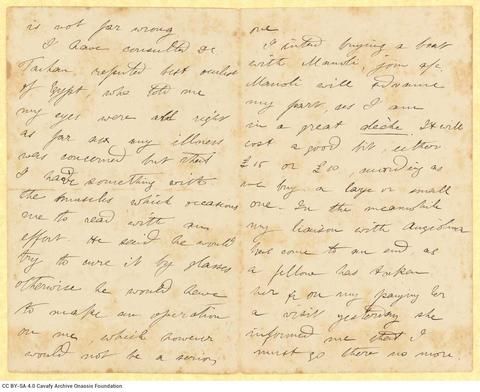 is not far wrong
I have consulted Dr
Taikan, reputed best oculist
of Egypt, who told me
my eyes were all right
as far as my illness
was concerned but that
I had something with
the muscles which occasions
me to read with an
effort. He said he would
try to cure it by glasses
otherwise he would have
to make an operation
on me, which however
would not be a serious
one
I intend buying a boat
with Manoli, your a/c
Manoli will advance
my part, as I am
in a great dèche. It will
cost a good bit, either
£15 or £20, according as
we buy a large or small
one. In the meanwhile
my liaison with Angiolina
has come to an end, as
a fellow has taken
her & on my paying her
a visit yesterday she
informed me that I
must go there no more.
CC BY-SA 4.0 Cavafy Archive Onassis Foundation